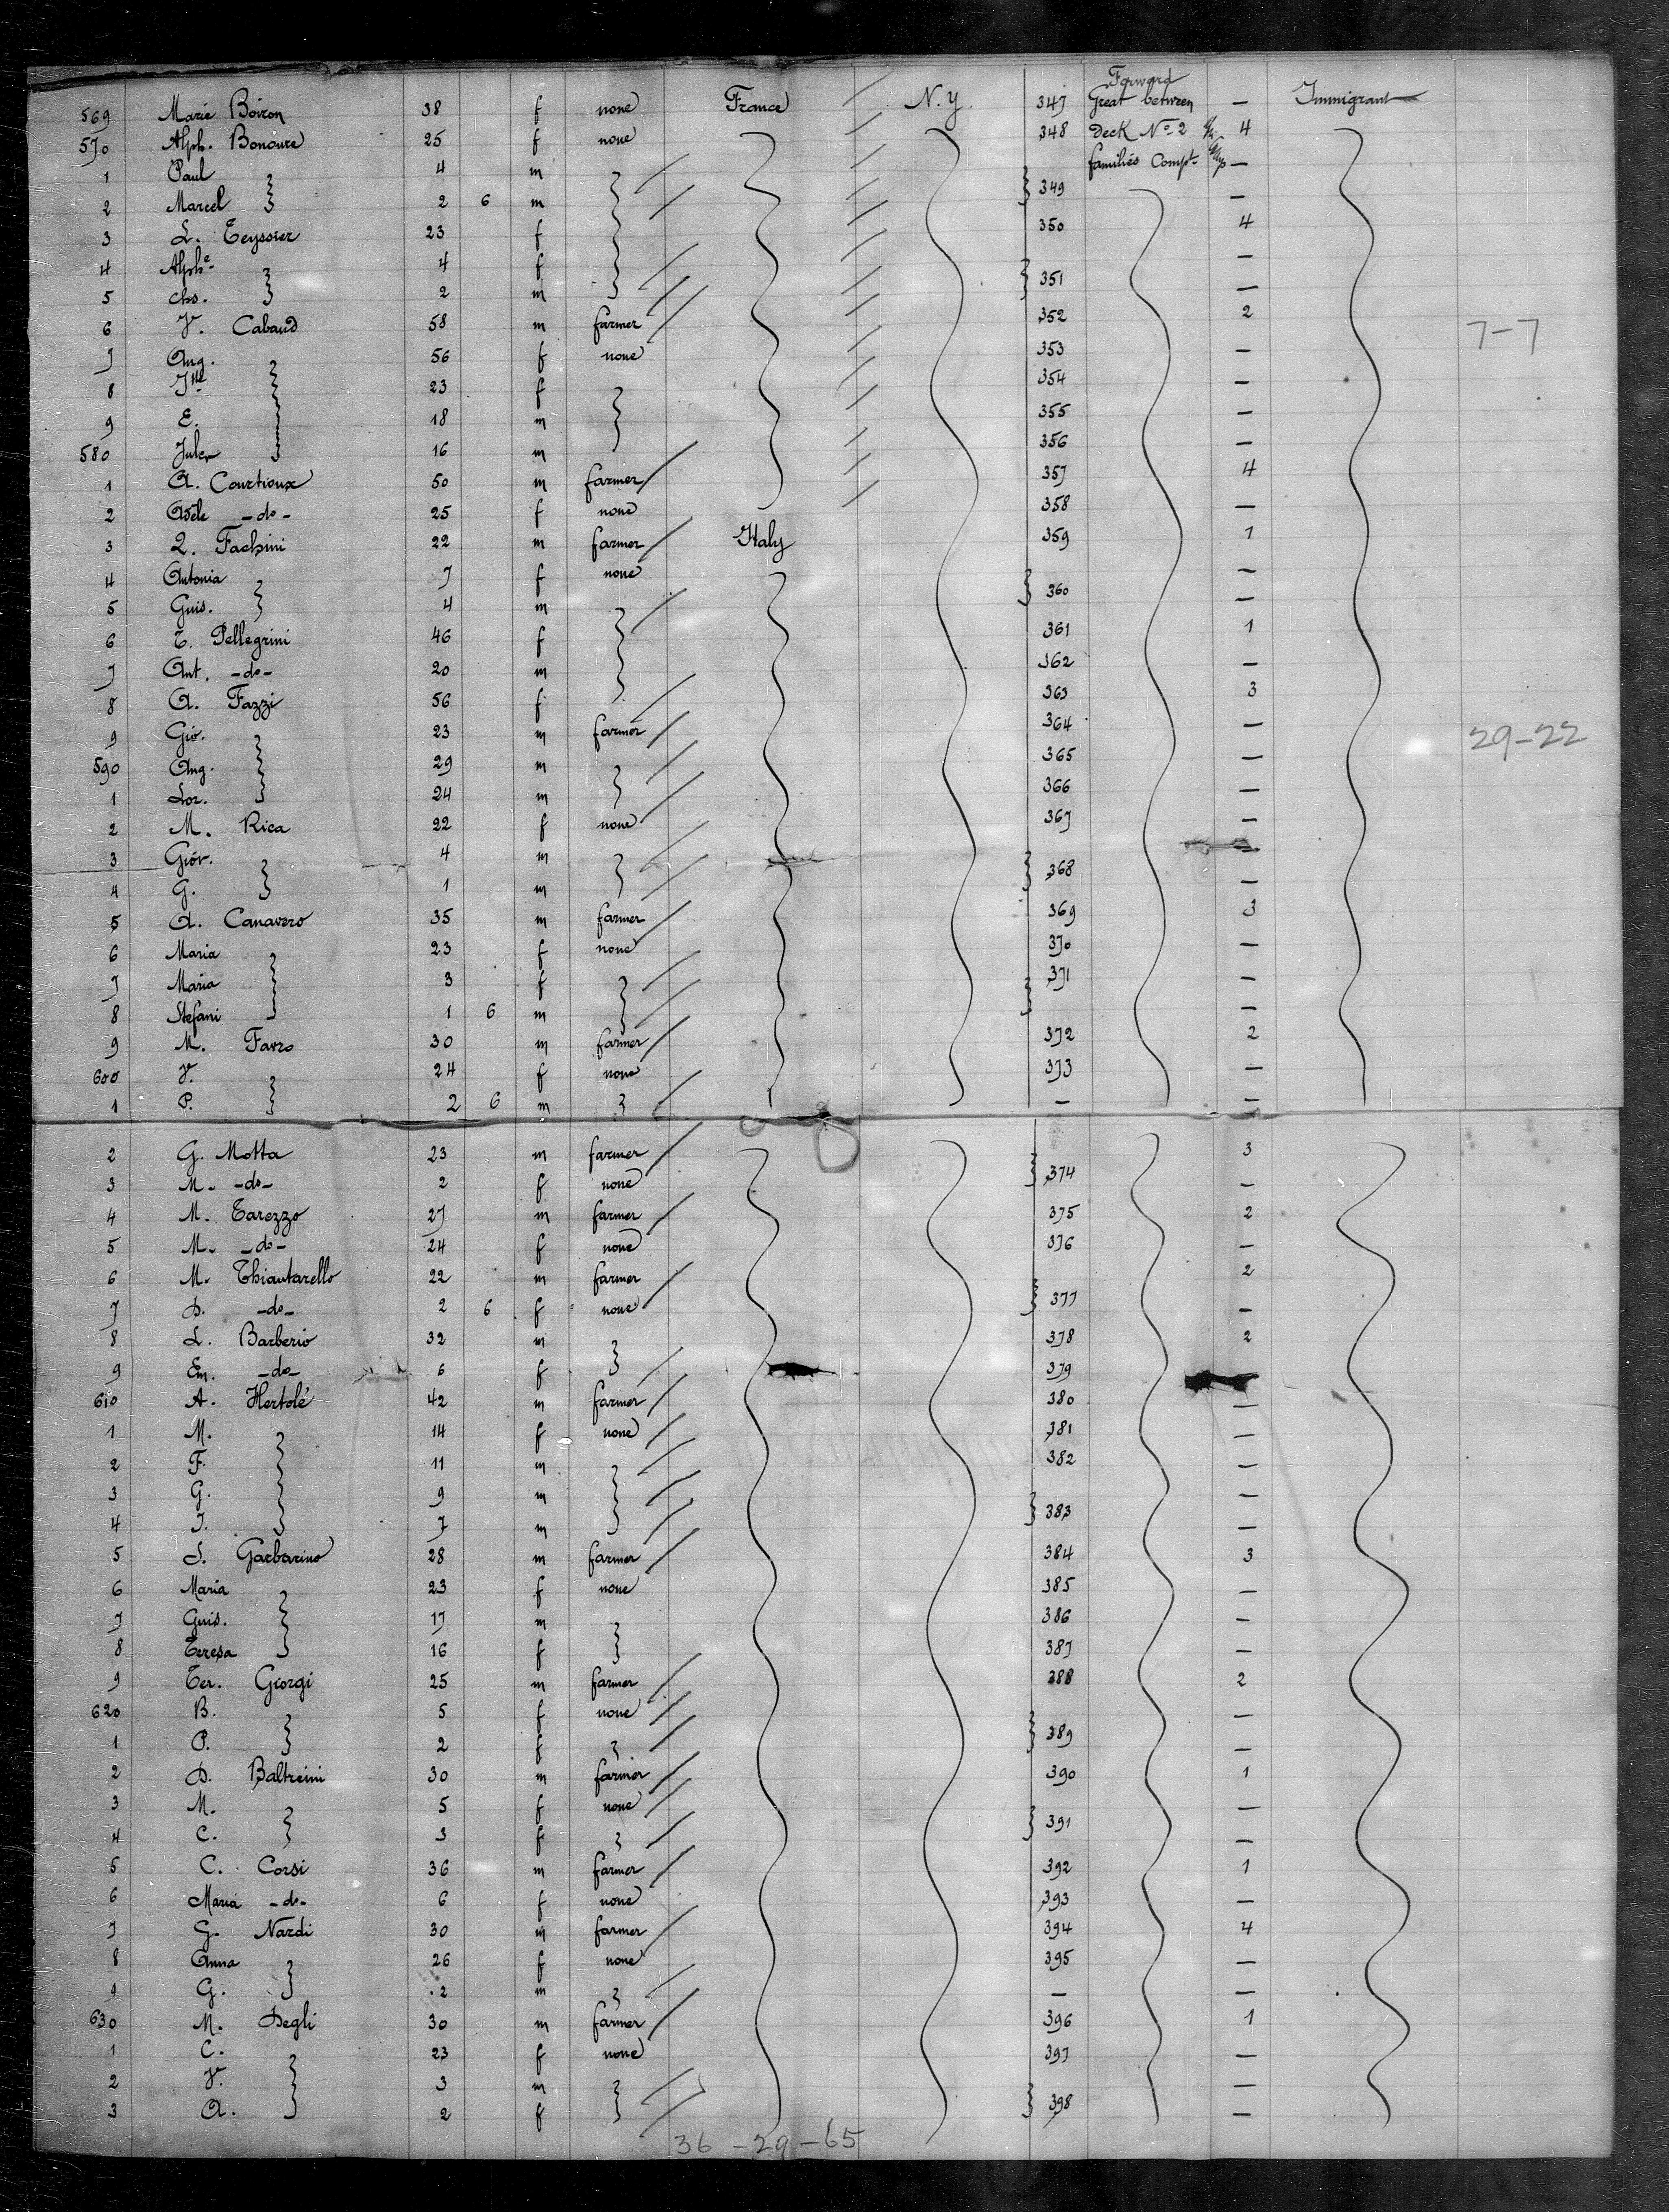 Forward
569 Marie Boiron 38 f none France N.Y. 347 Great between — Immigrant
570 Alph. Bonoure 25 f none 348 Deck No. 2 4
1 Paul 4 m families Compt. —
2 Marcel 2 6 m 349 —
3 L. Teyssier 23 f 350 4
4 Alphe. 4 f —
5 chs. 2 m 351 —
6 Jn. Cabaud 58 m farmer 352 2
7 Aug. 56 f none 353 — 7-7
8 23 f 354 —
9 E. 18 m 355 —
580 Jules 16 m 356 —
1 A. Courtioux 50 m farmer 357 4
2 Adèle -do- 25 f none 358 —
3 Q. Fachini 22 m farmer Italy 359 1
4 Antonia 7 f none —
5 Guis. 4 m 360 —
6 T. Pellegrini 46 f 361 1
7 Ant. -do- 20 m 362 —
8 A. Fazzi 56 f 363 3
9 Gio. 23 m farmer 364 — 29-22
590 Ang. 29 m 365 —
1 Lor. 24 m 366 —
2 M. Rica 22 f none 367 —
3 Giov. 4 m —
4 G. 1 m 368 —
5 A. Canavero 35 m farmer 369 3
6 Maria 23 f none 370 —
7 Maria 3 f 371 —
8 Stefani 1 6 m —
9 M. Favro 30 m farmer 372 2
600 24 f none 373 —
1 P. 2 6 m — —
2 G. Motta 23 m farmer 3
3 M. -do- 2 f none 374 —
4 M. Tarezzo 27 m farmer 375 2
5 M. -do- 24 f none 376 —
6 M. Thiantarello 22 m farmer 2
7 D. -do- 2 6 f none 377 —
8 L. Barberio 32 m 378 2
9 Em. -do- 6 f 379
610 A. Hertolé 42 m farmer 380 —
1 M. 14 f none 381 —
2 F. 11 m 382 —
3 G. 9 m —
4 J. 7 m 383 —
5 S. Garbarino 28 m farmer 384 3
6 Maria 23 f none 385 —
7 Guis. 17 m 386 —
8 Teresa 16 f 387 —
9 Ter. Giorgi 25 m farmer 388 2
620 B. 5 f none —
1 P. 2 f 389 —
2 D. Baltreini 30 m farmer 390 1
3 M. 5 f none —
4 C. 3 f 391 —
5 C. Corsi 36 m farmer 392 1
6 Maria -do- 6 f none 393 —
7 G. Nardi 30 m farmer 394 4
8 Anna 26 f none 395 —
9 G. 2 m — —
630 M. Degli 30 m farmer 396 1
1 C. 23 f none 397 —
2 3 m —
3 A. 2 f 398 —
36 - 29 - 65